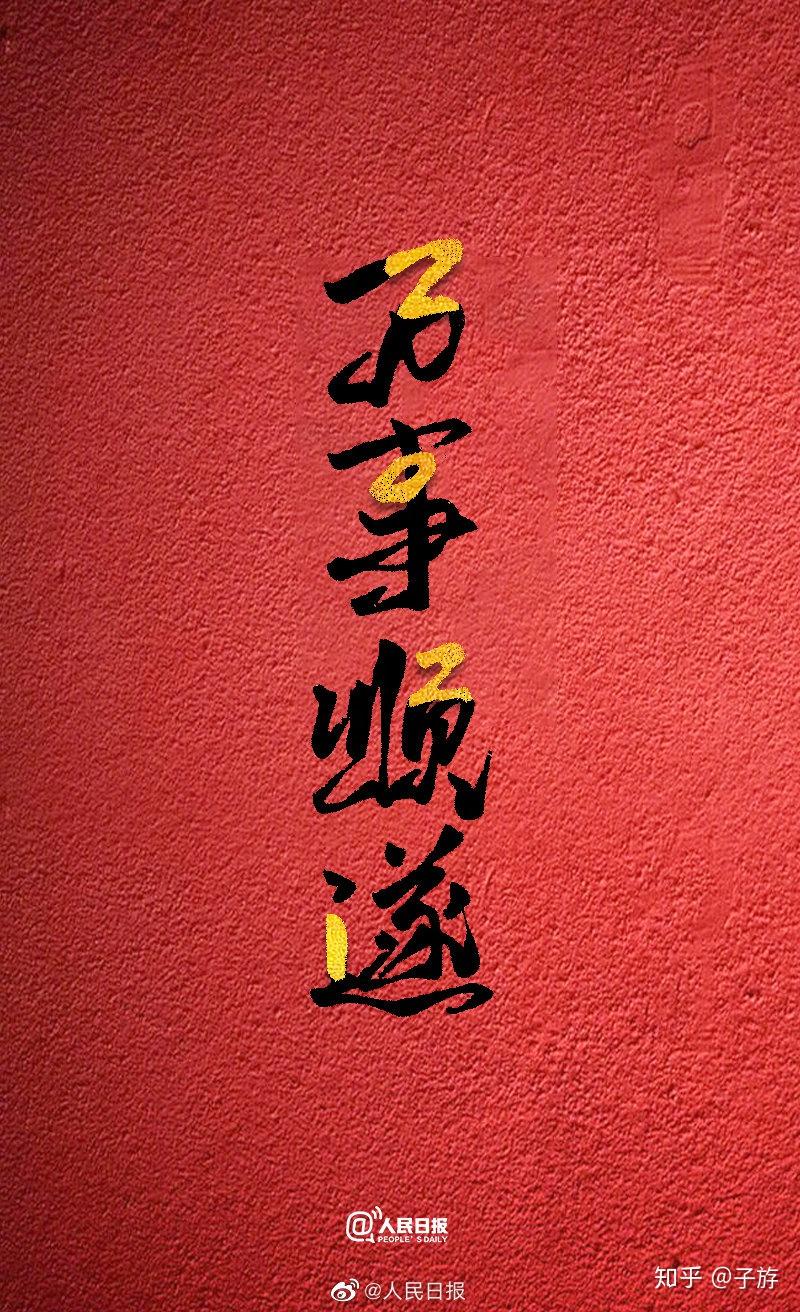 万事顺遂
@人民日报
PEOPLE'S DAILY
@人民日报
知乎 @子斿